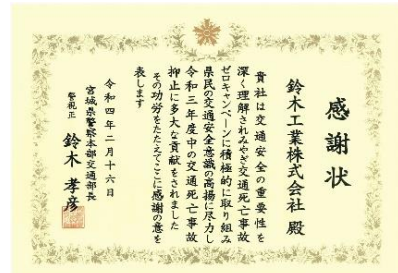 感謝状
鈴木工業株式会社 殿
貴社は交通安全の重要性を
深く理解されみやぎ交通死亡事故
ゼロキャンペーンに積極的に取り組み
県民の交通安全意識の高揚に尽力し
令和三年度中の交通死亡事故
抑止に多大な貢献をされました
その功労をたたえてここに感謝の意を
表します
令和四年二月十六日
宮城県警察本部交通部長
警視正 鈴木孝彦